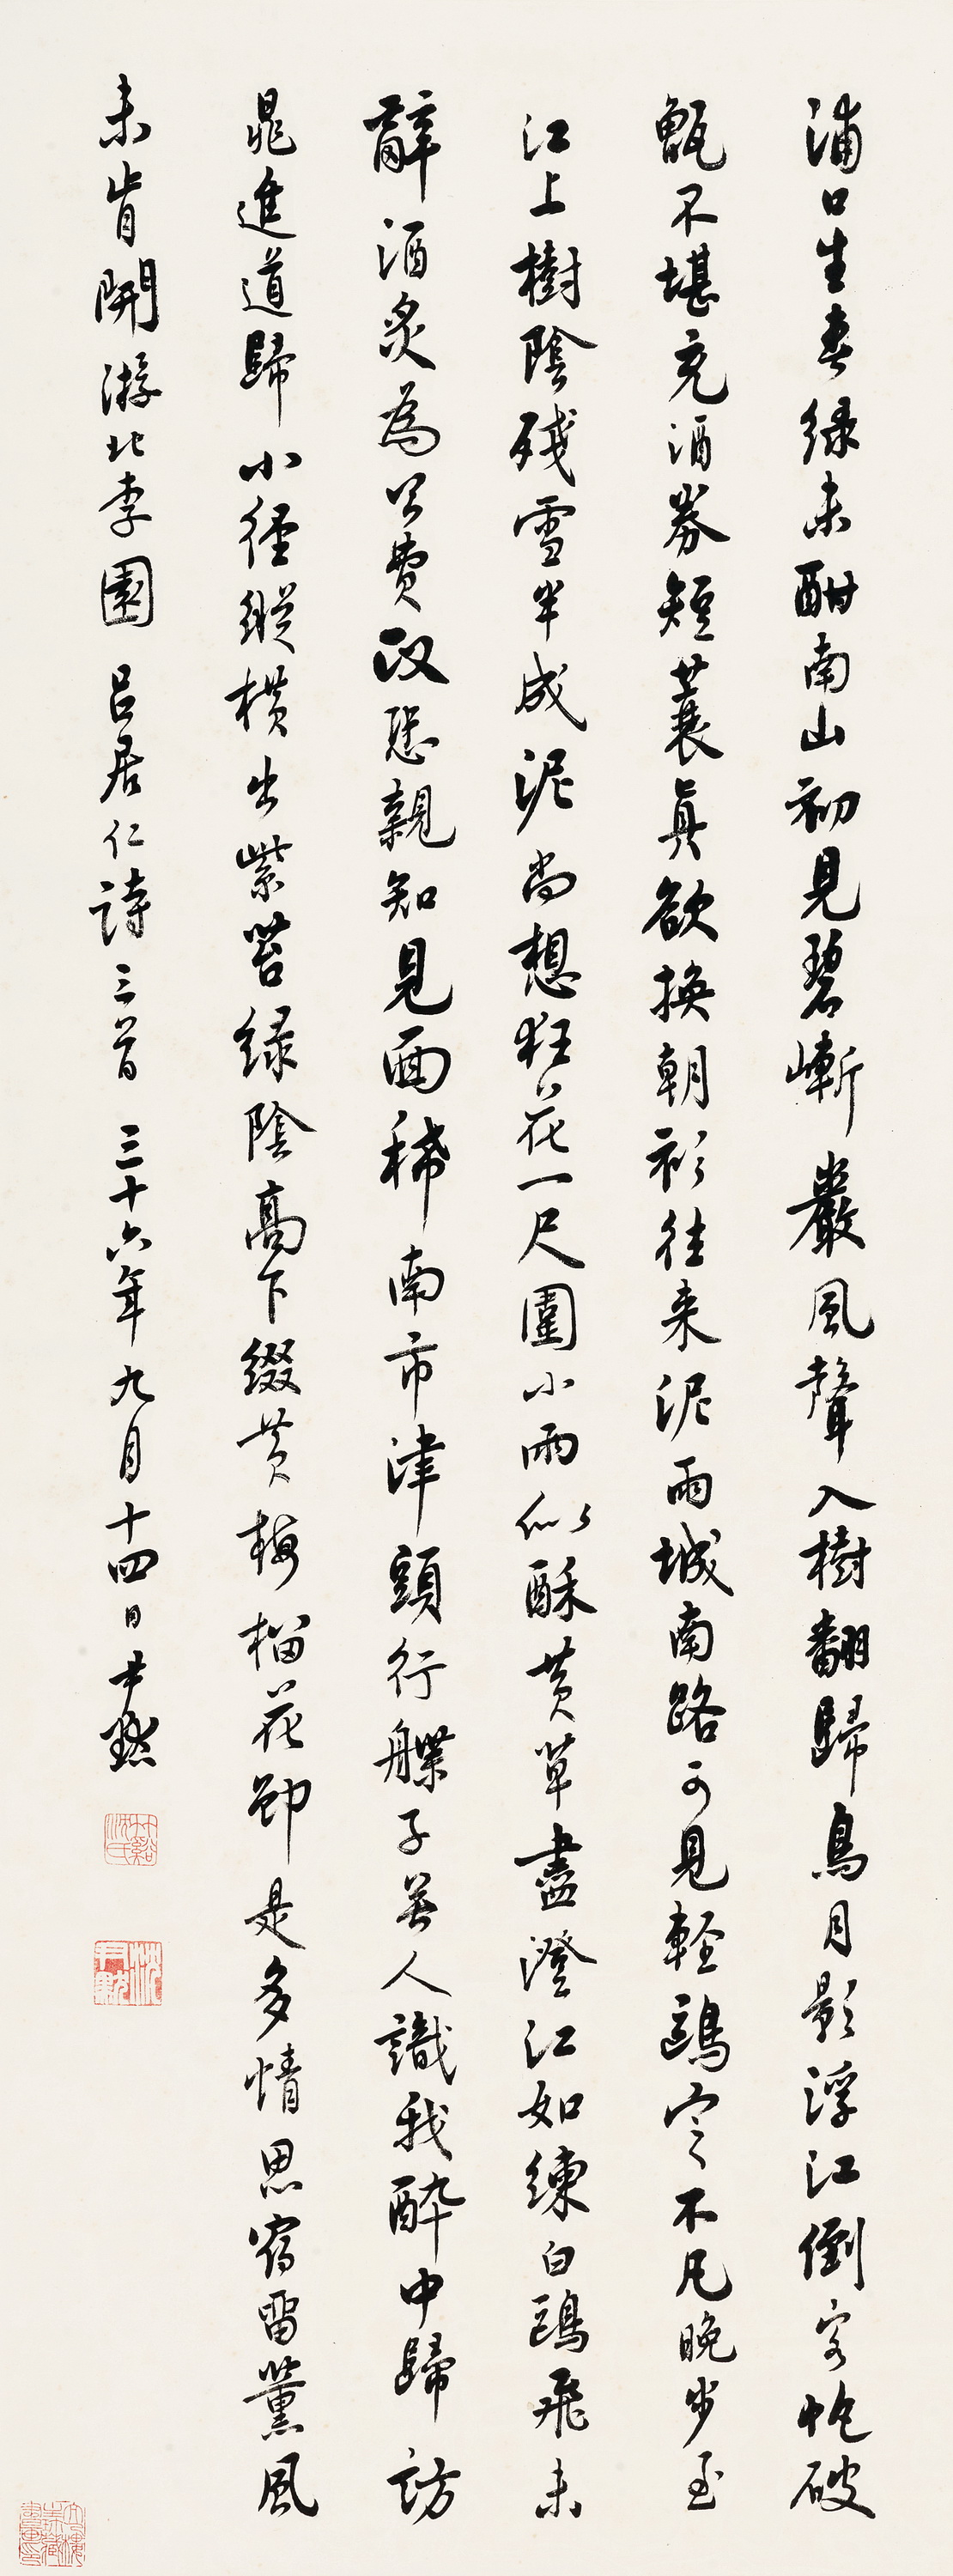 浦口生春綠未酣南山初見碧嶄巖風聲入樹翻歸鳥月影浮江倒客帆破
甑不堪充酒券短蓑真欲換朝衫往來泥雨城南路可見輕鷗定不凡晚步至
江上樹陰殘雪半成泥尚想狂花一尺圍小雨似酥黃草盡澄江如練白鷗飛未
辭酒炙為公費政恐親知見面稀南市津頭行艓子無人識我醉中歸訪
晁進道歸小徑縱橫出紫苔綠陰高下綴黃梅榴花却是多情思宿留薰風
未肯開游北李園呂居仁詩三首三十六年九月十四日尹默
竹谿沈氏
沈尹默